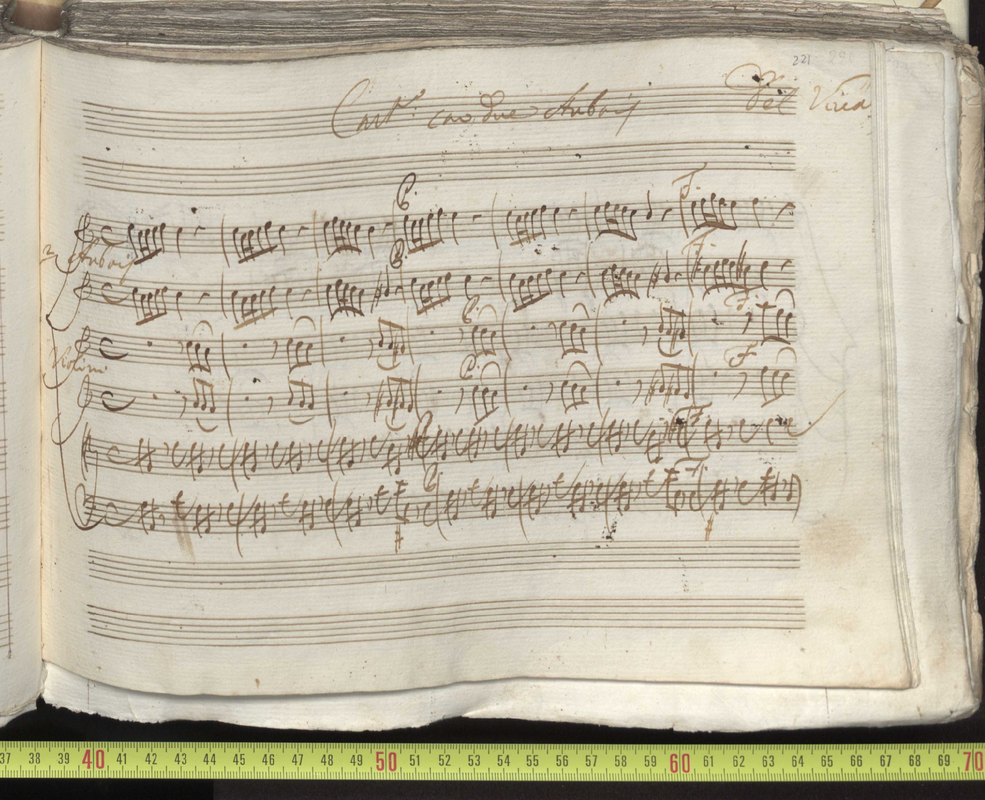 221 220
Con.to con due Aubois Del Vivaldi
P. F.
2 Aubois
P. F.
P. F.
Violini
P. F.
P. F.
P. F.
37 38 39 40 41 42 43 44 45 46 47 48 49 50 51 52 53 54 55 56 57 58 59 60 61 62 63 64 65 66 67 68 69 70